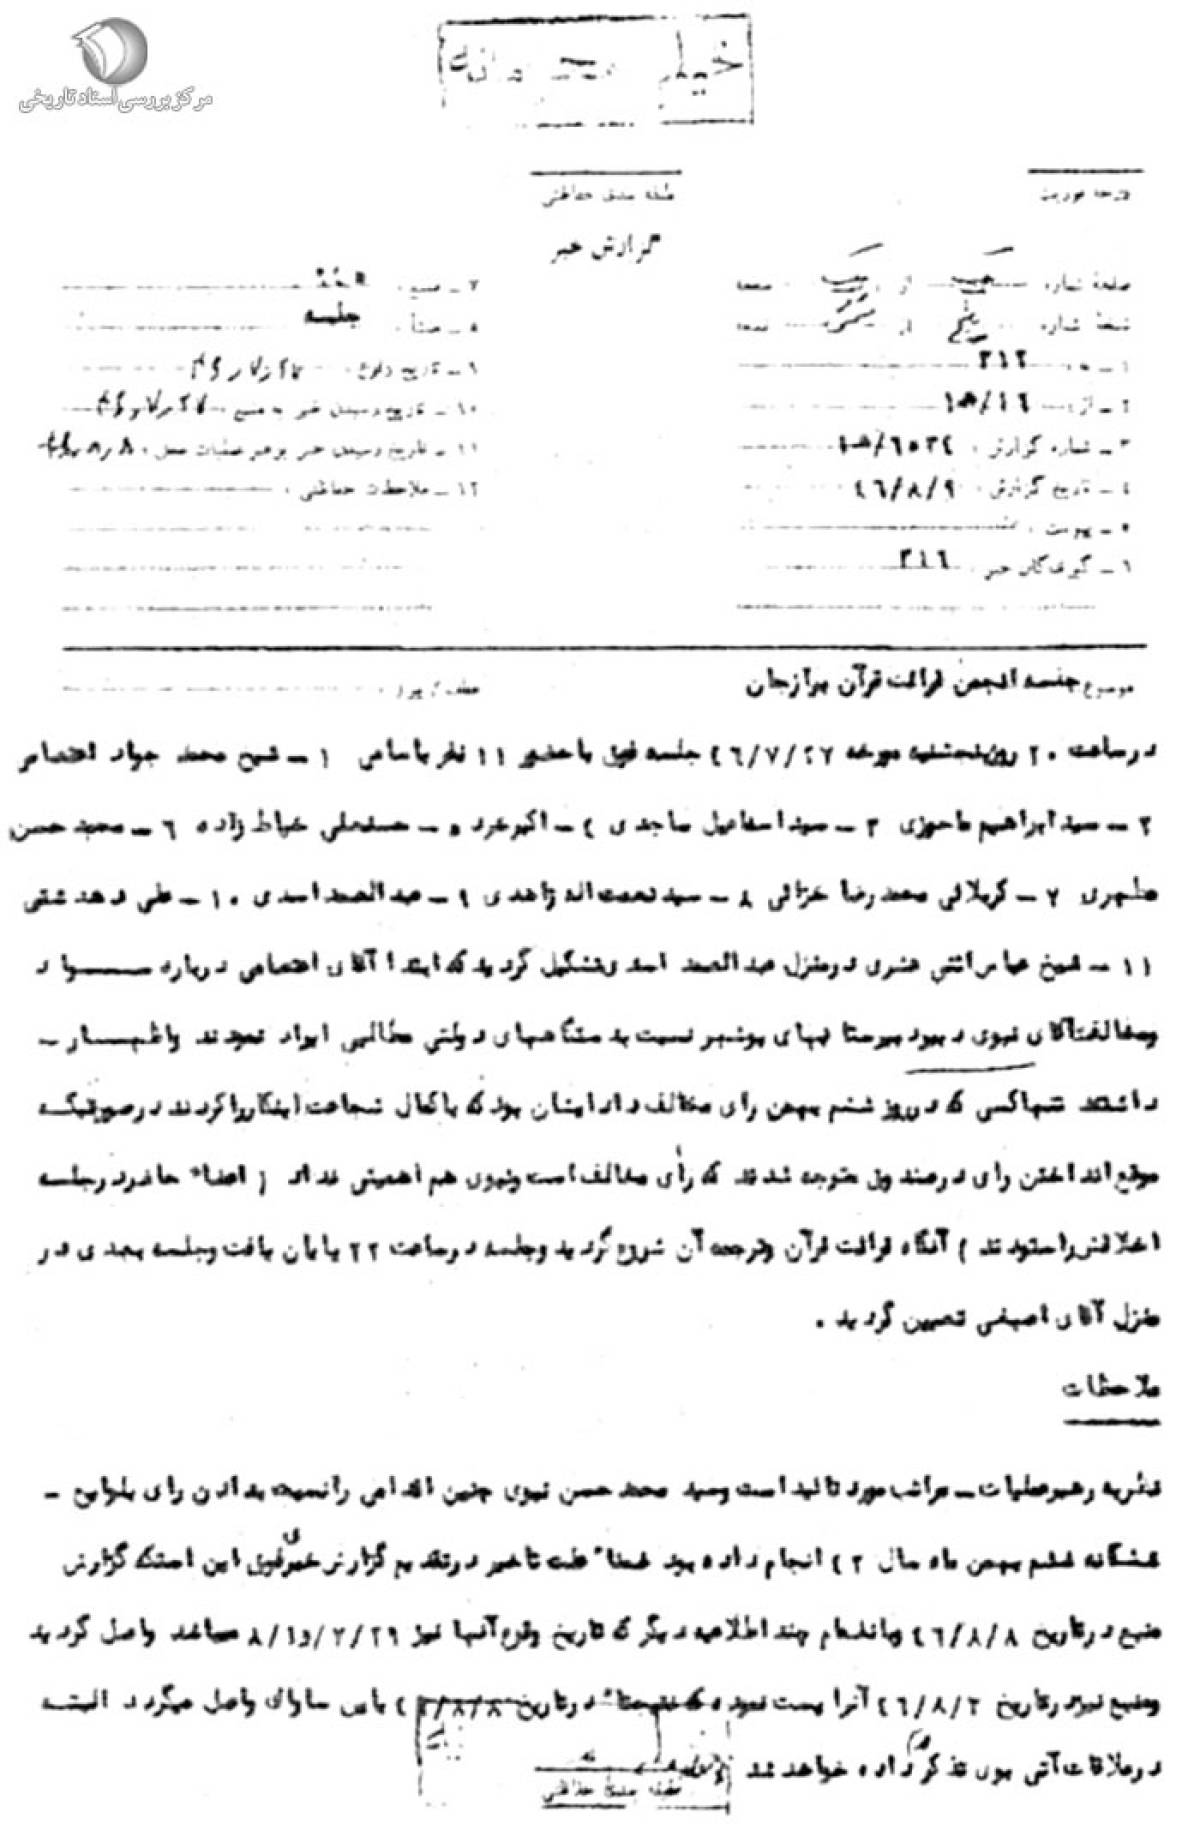 مرکز بررسی اسناد تاریخی
خیلی محرمانه
درجه فوریت
طبقه بندی حفاظتی
گزارش خبر
صفحهٔ شماره یک از یک صفحه
نسخهٔ شماره از نسخه
۱ - به ۳۱۲
۲ - از
۳ - شماره گزارش
۴ - تاریخ گزارش ۴۶/۸/۹
۵ - پیوست
۶ - گیرندگان خبر ۳۱۶
۷ - منبع
۸ - منشأ جلسه
۹ - تاریخ وقوع
۱۰ - تاریخ رسیدن خبر به منبع
۱۱ - تاریخ رسیدن خبر برهبر عملیات محل
۱۲ - ملاحظات حفاظتی
موضوع جلسه انجمن قرائت قرآن برازجان
در ساعت ۲۰ روز پنجشنبه مورخه ۴۶/۷/۲۷ جلسه فوق با حضور ۱۱ نفر باسامی ۱ - شیخ محمد جواد اعتصام
۲ - سید ابراهیم ماحوزی ۳ - سید اسماعیل ساجدی ۴ - اکبر خرد ۵ - حسنعلی خیاط زاده ۶ - محمد حسن
مطهری ۷ - کربلائی محمد رضا خزائی ۸ - سید نعمت اله زاهدی ۹ - عبدالصمد اسدی ۱۰ - علی دهدشتی
۱۱ - شیخ عباس در منزل عبدالصمد اسدی تشکیل گردید که ابتدا آقای اعتصامی درباره سواد
ومخالفت آقای نبوی دبیر دبیرستانهای بوشهر نسبت بدستگاههای دولتی مطالبی ایراد نمودند واظهار -
داشتند تنها کسی که در روز ششم بهمن رای مخالف داد ایشان بود که با کمال شجاعت اینکار را کردند در صورتیکه
موقع انداختن رای در صندوق متوجه شدند که رأی مخالف است ونبوی هم اهمیتی نداد ( اعضاء حاضر در جلسه
اخلاقش را ستودند ) آنگاه قرائت قرآن وترجمه آن شروع گردید وجلسه در ساعت ۲۲ پایان یافت وجلسه بعدی در
منزل آقای تعیین گردید .
ملاحظات
نظریه رهبر عملیات - مراتب مورد تائید است وسید محمد حسن نبوی چنین اقدامی را نسبت بدادن رای بلوایح -
ششگانه ششم بهمن ماه سال ۴۲ انجام داده بود ضمنا" علت تاخیر در تقدیم گزارش خبری فوق این استکه گزارش
منبع در تاریخ ۴۶/۸/۸ وبانضمام چند اطلاعیه دیگر که تاریخ وقوع آنها نیز میباشد واصل گردید
ومنبع نیز در تاریخ ۴۶/۸/۲ آنرا پست نموده که نتیجتا" در تاریخ ۴۶/۸/۸ باین ساواک واصل میگردد البته
در ملاقات آتی بوی تذکر داده خواهد شد
طبقه بندی حفاظتی